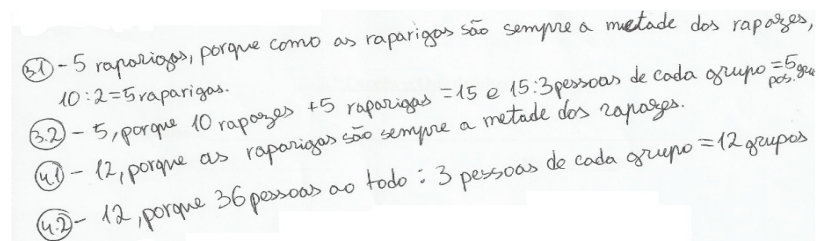 3.1 - 5 raparigas, porque como as raparigas são sempre a metade dos rapazes,
10:2=5 raparigas.
3.2 - 5, porque 10 rapazes +5 raparigas =15 e 15:3 pessoas de cada grupo =5
4.1 - 12, porque as raparigas são sempre a metade dos rapazes.
4.2 - 12, porque 36 pessoas ao todo : 3 pessoas de cada grupo = 12 grupos